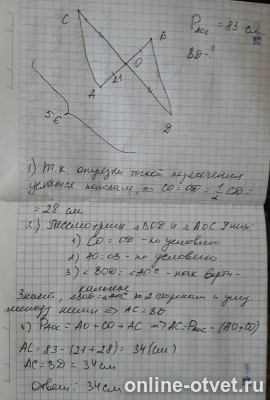 C
P_AOC = 83 см
B
BD - ?
O
21
A
D
56
1) Т.к. отрезки точкой пересечения
делятся пополам, то CO = OD = 1/2 CD =
= 28 см
2) Рассмотрим △BOD и △AOC. У них:
1) CO = OD - по условию
2) AO = OB - по условию
3) ∠BOD = ∠AOC - как верти-
кальные
Значит, △BOD = △AOC по 2 сторонам и углу
между ними ⇒ AC = BD
P_AOC = AO + CO + AC ⇒ AC = P_AOC - (AO + CO)
AC = 83 - (21 + 28) = 34 (см)
AC = BD = 34 см
Ответ: 34 см
online-otvet.ru